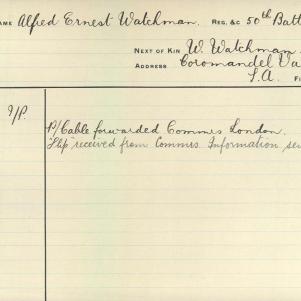 AME Alfred Ernest Watchman. REG. &C 50th Batt
NEXT OF KIN W. Watchman
ADDRESS Coromandel Va
S.A.
9/P.
P/Cable forwarded Commrs London.
"Slip" received from Commrs. Information sen